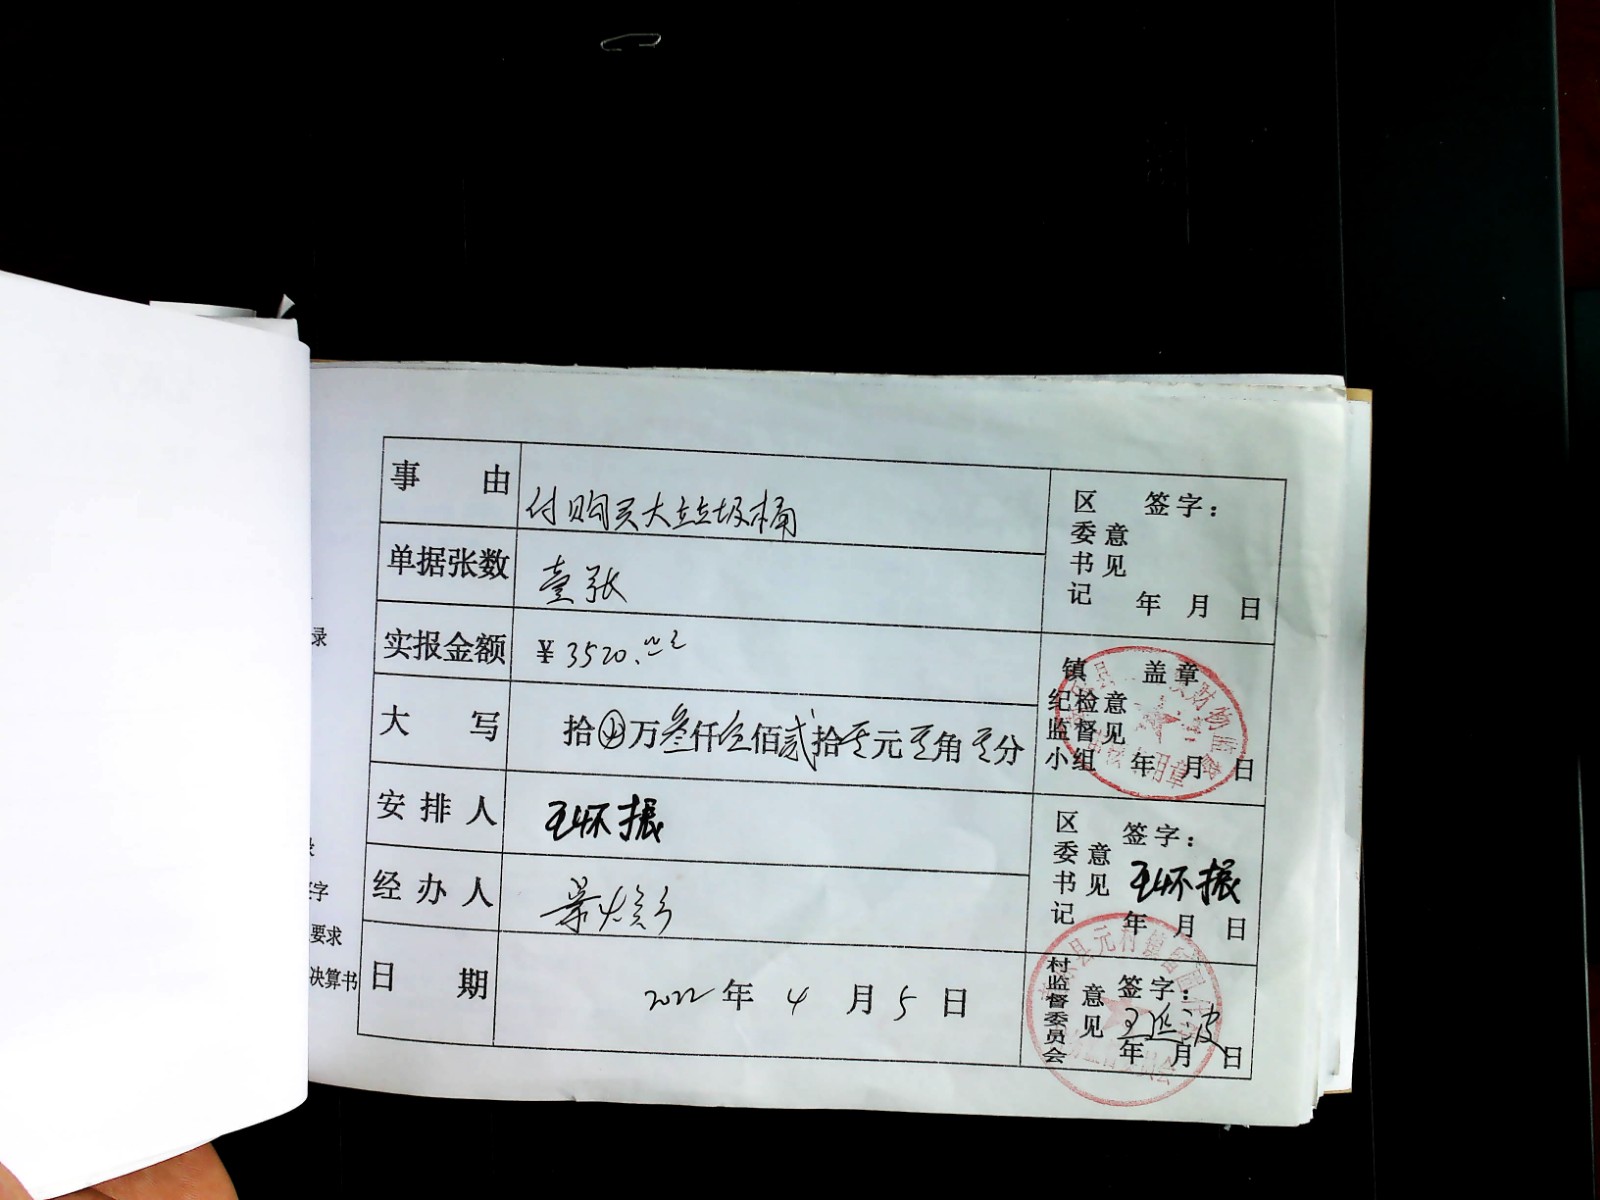 事由 付购买大垃圾桶
单据张数 壹张
实报金额 ¥3520.00元
大写 拾 万叁仟伍佰贰拾零元零角零分
安排人 王怀振
经办人
日期 2022年4月5日
区委书记意见 签字：
年 月 日
镇纪检监督小组意见 盖章
年 月 日
区委书记意见 签字：
王怀振
年 月 日
村监督委员会意见 签字：
王延波
年 月 日
录
签字
要求
决算书